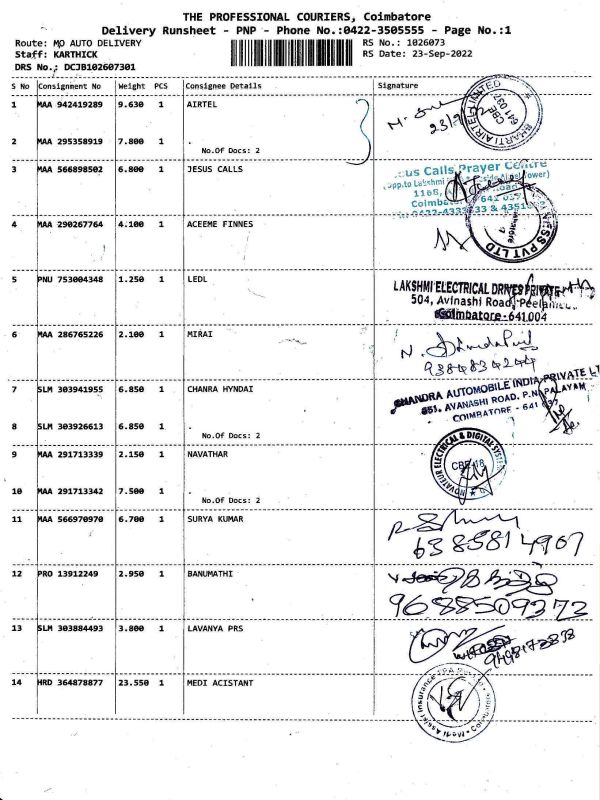 THE PROFESSIONAL COURIERS, Coimbatore
Delivery Runsheet - PNP - Phone No.:0422-3505555 - Page No.:1
Route: MO AUTO DELIVERY RS No.: 1026073
Staff: KARTHICK RS Date: 23-Sep-2022
DRS No.: DCJB102607301
S No Consignment No Weight PCS Consignee Details Signature
1 MAA 942419289 9.630 1 AIRTEL
BHARTI AIRTEL LIMITED
CBE
641 037
2 MAA 295358919 7.800 1 .
No.Of Docs: 2
3 MAA 566898502 6.800 1 JESUS CALLS
Calls Prayer Centre
4 MAA 290267764 4.100 1 ACEEME FINNES
PVT LTD
5 PNU 753004348 1.250 1 LEDL
LAKSHMI ELECTRICAL DRIVES PRIVATE
504, Avinashi Road,
Coimbatore-641004
6 MAA 286765226 2.100 1 MIRAI
9384834244
7 SLM 303941955 6.850 1 CHANRA HYNDAI
CHANDRA AUTOMOBILE INDIA PRIVATE
851, AVANASHI ROAD, P.N.PALAYAM
COIMBATORE - 641 037
8 SLM 303926613 6.850 1 .
No.Of Docs: 2
9 MAA 291713339 2.150 1 NAVATHAR
ELECTRICAL & DIGITAL
10 MAA 291713342 7.500 1 .
No.Of Docs: 2
11 MAA 566970970 6.700 1 SURYA KUMAR
6385814907
12 PRO 13912249 2.950 1 BANUMATHI
9688509373
13 SLM 303884493 3.800 1 LAVANYA PRS
14 HRD 364878877 23.550 1 MEDI ACISTANT
Medi Assist Insurance TPA